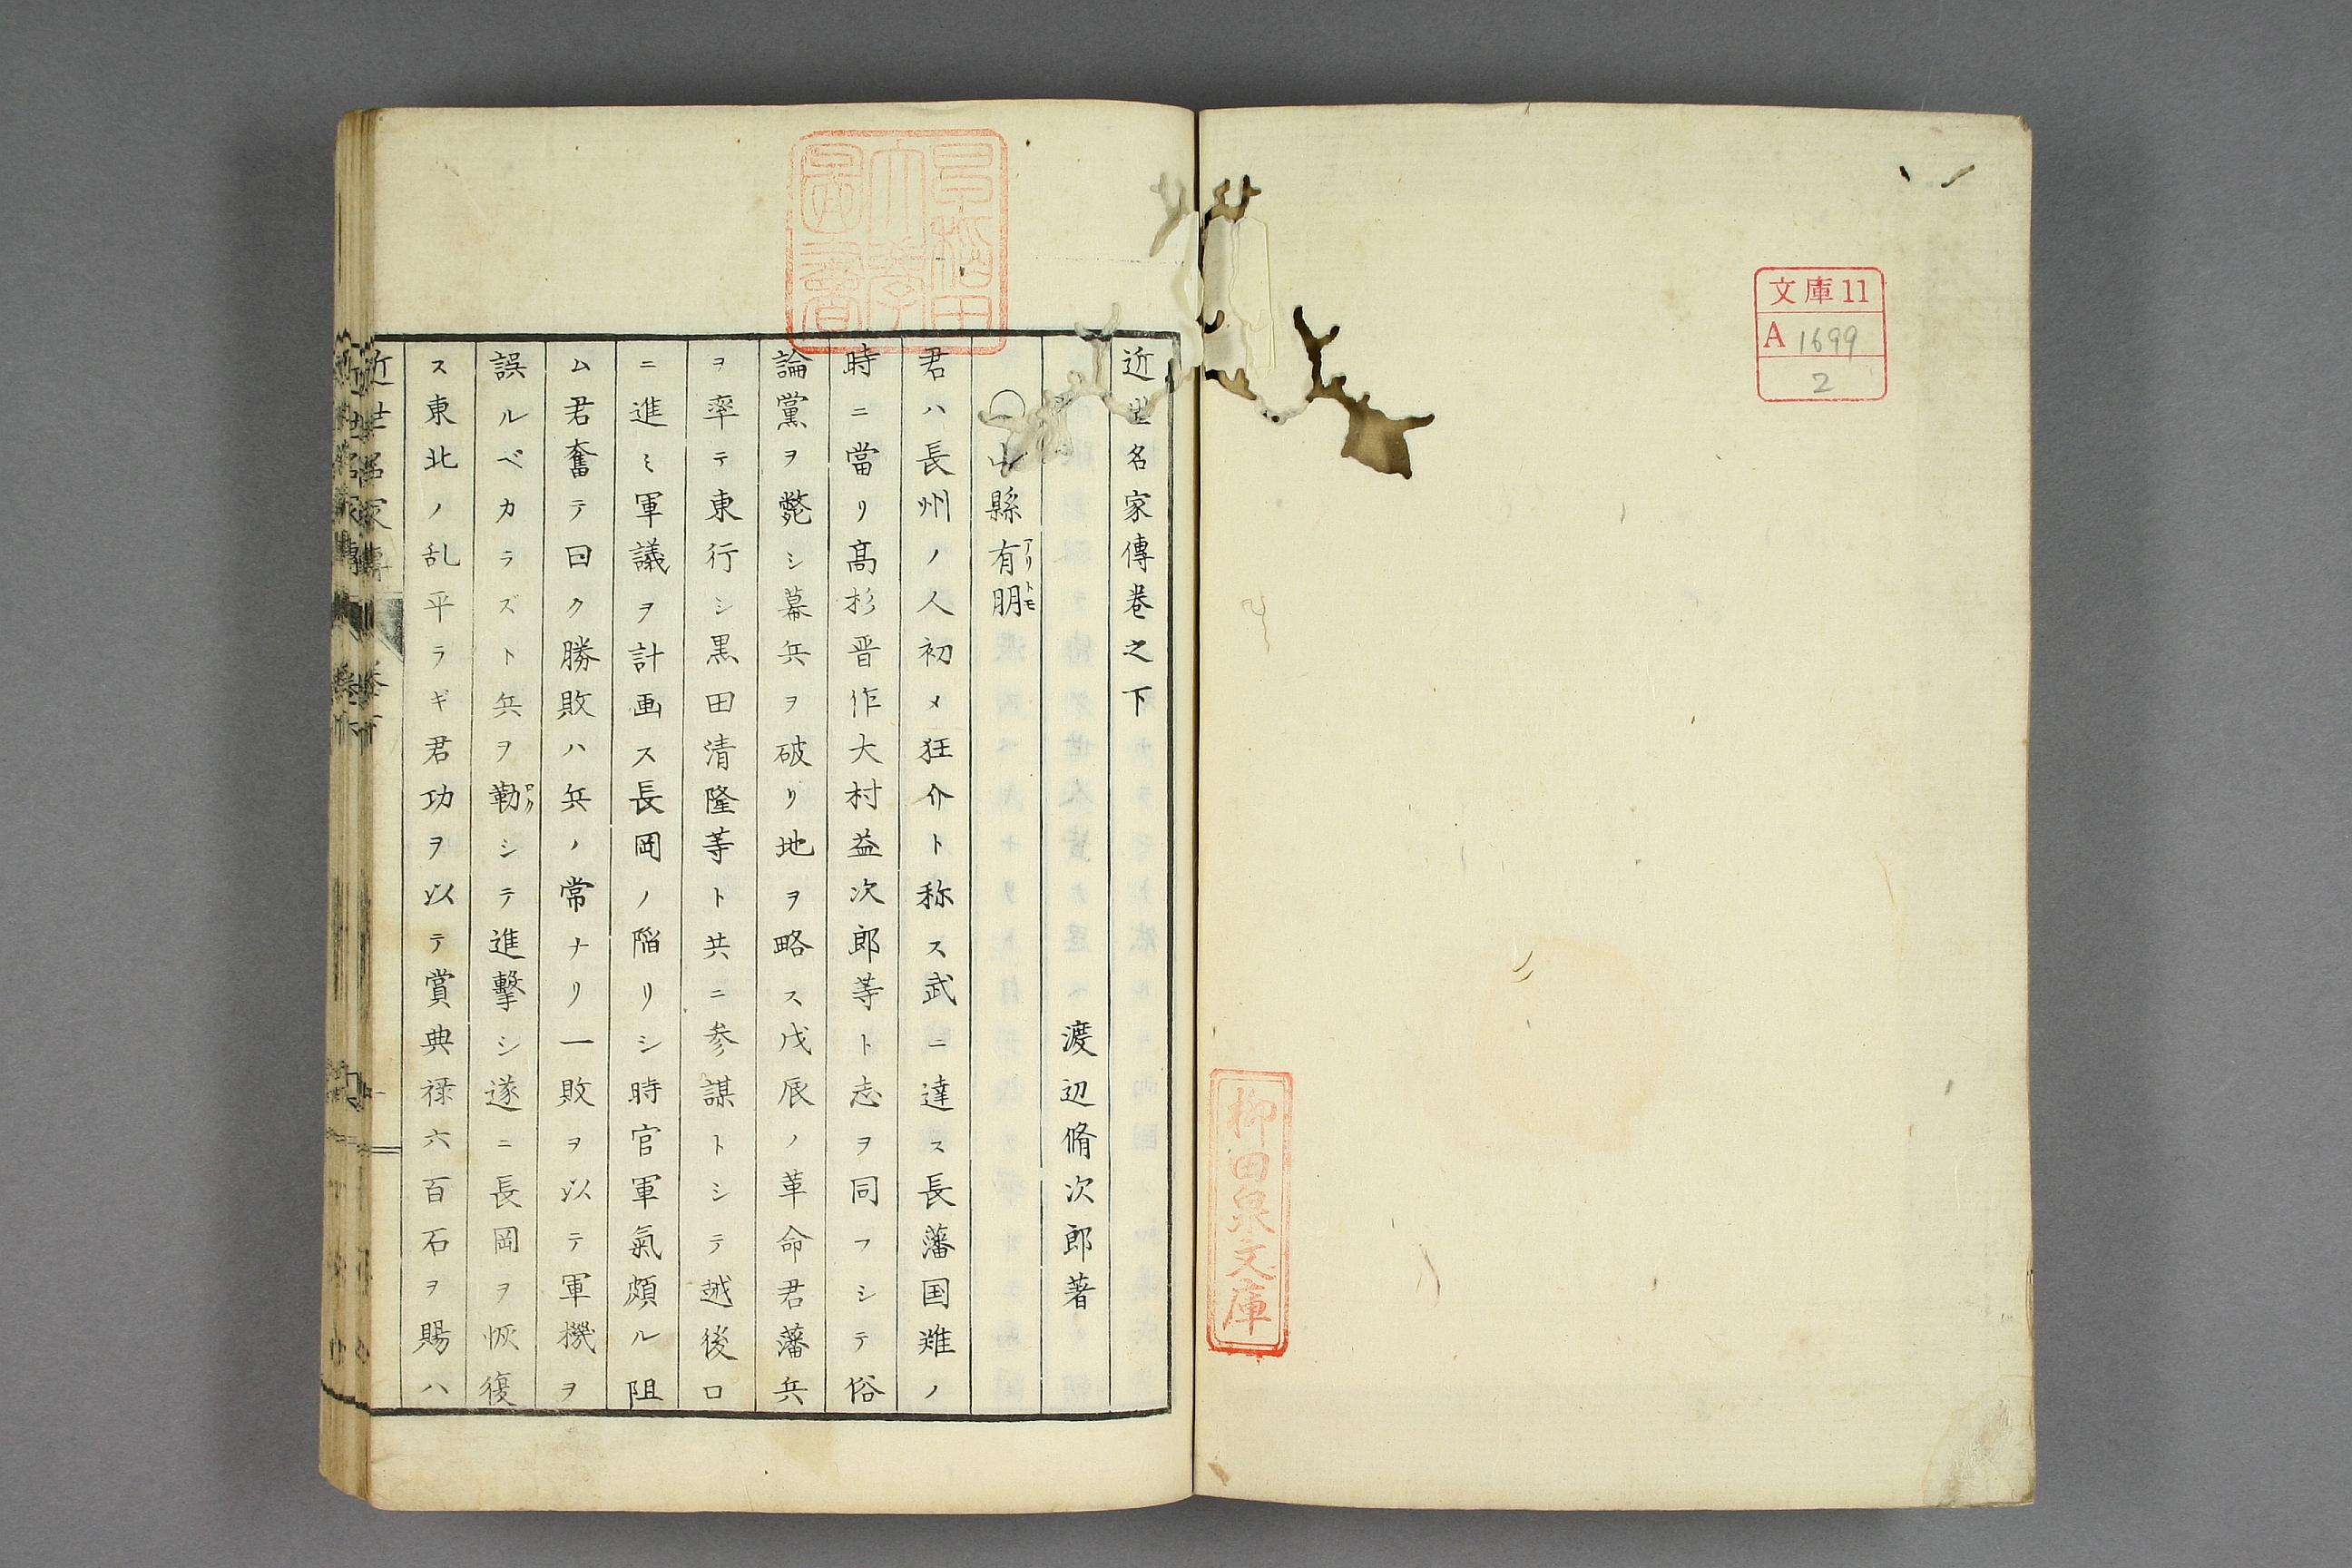 文庫11
A 1699
2
柳田泉文庫
早稲田大学図書
近世名家傳巻之下
渡辺脩次郎著
○山縣有朋
アリトモ
君ハ長州ノ人初メ狂介ト称ス武ニ達ス長藩国難ノ
時ニ當リ高杉晋作大村益次郎等ト志ヲ同フシテ俗
論黨ヲ斃シ幕兵ヲ破リ地ヲ略ス戊辰ノ革命君藩兵
ヲ率テ東行シ黒田清隆等ト共ニ参謀トシテ越後口
ニ進ミ軍議ヲ計画ス長岡ノ陥リシ時官軍氣頗ル阻
ム君奮テ曰ク勝敗ハ兵ノ常ナリ一敗ヲ以テ軍機ヲ
誤ルベカラズト兵ヲ勒シテ進擊シ遂ニ長岡ヲ恢復
ロク
ス東北ノ乱平ラギ君功ヲ以テ賞典禄六百石ヲ賜ハ
近世名家傳